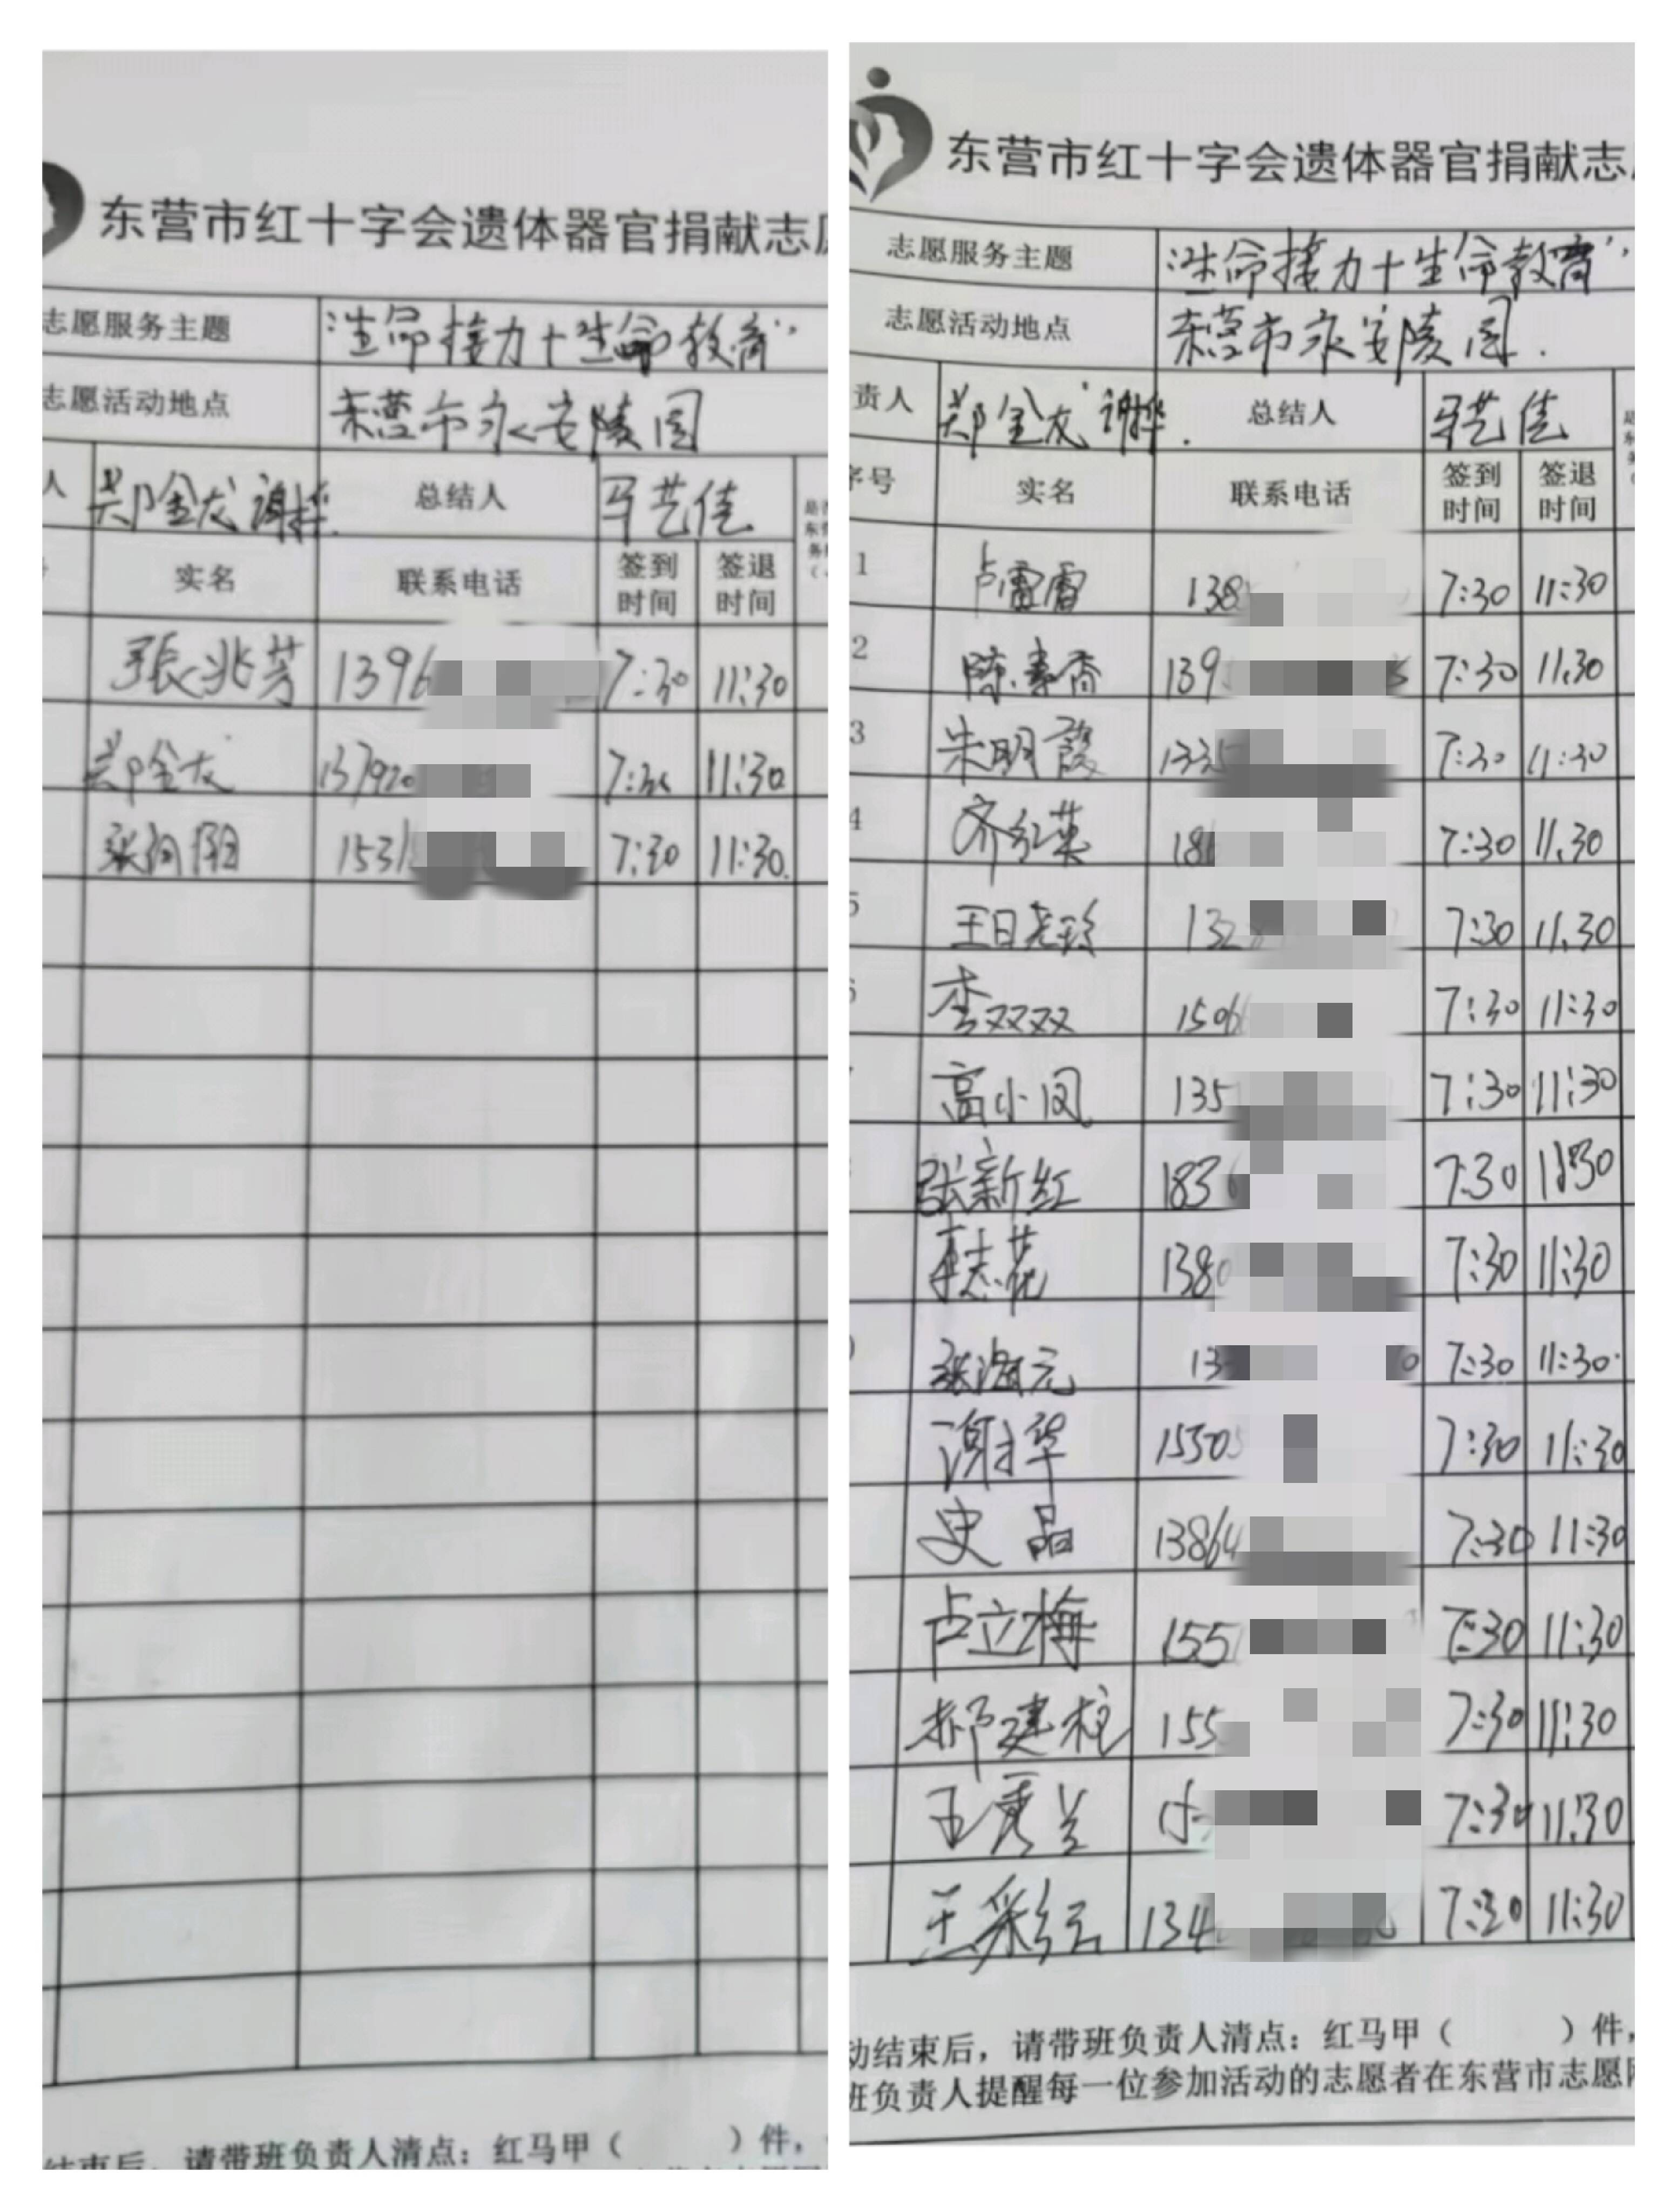 东营市红十字会遗体器官捐献志
志愿服务主题 “生命接力+生命教育”
志愿活动地点 东营市永安陵园
人 郑金龙 谢华. 总结人 马艺佳
实名 联系电话 签到时间 签退时间
張兆芳 1396 7:30 11:30
郑金龙 137920 7:30 11:30
张向阳 1531 7:30 11:30.
结束后，请带班负责人清点：红马甲（ ）件，
东营市红十字会遗体器官捐献志
志愿服务主题 “生命接力+生命教育”
志愿活动地点 东营市永安陵园.
责人 郑金龙 谢华. 总结人 马艺佳
序号 实名 联系电话 签到时间 签退时间
1 卢雷雷 138 7:30 11:30
2 陈春香 139 7:30 11:30
3 朱明霞 1335 7:30 11:30
4 齐红英 186 7:30 11:30
5 132 7:30 11:30
李双双 1506 7:30 11:30
高小凤 135 7:30 11:30
张新红 183 7:30 11:30
李志花 1380 7:30 11:30
张 元 13 0 7:30 11:30
谢华 15505 7:30 11:30
史晶 13864 7:30 11:30
卢立梅 155 7:30 11:30
郝建柱 155 7:30 11:30
王秀兰 15 7:30 11:30
王彩红 134 7:30 11:30
动结束后，请带班负责人清点：红马甲（ ）件，
班负责人提醒每一位参加活动的志愿者在东营市志愿